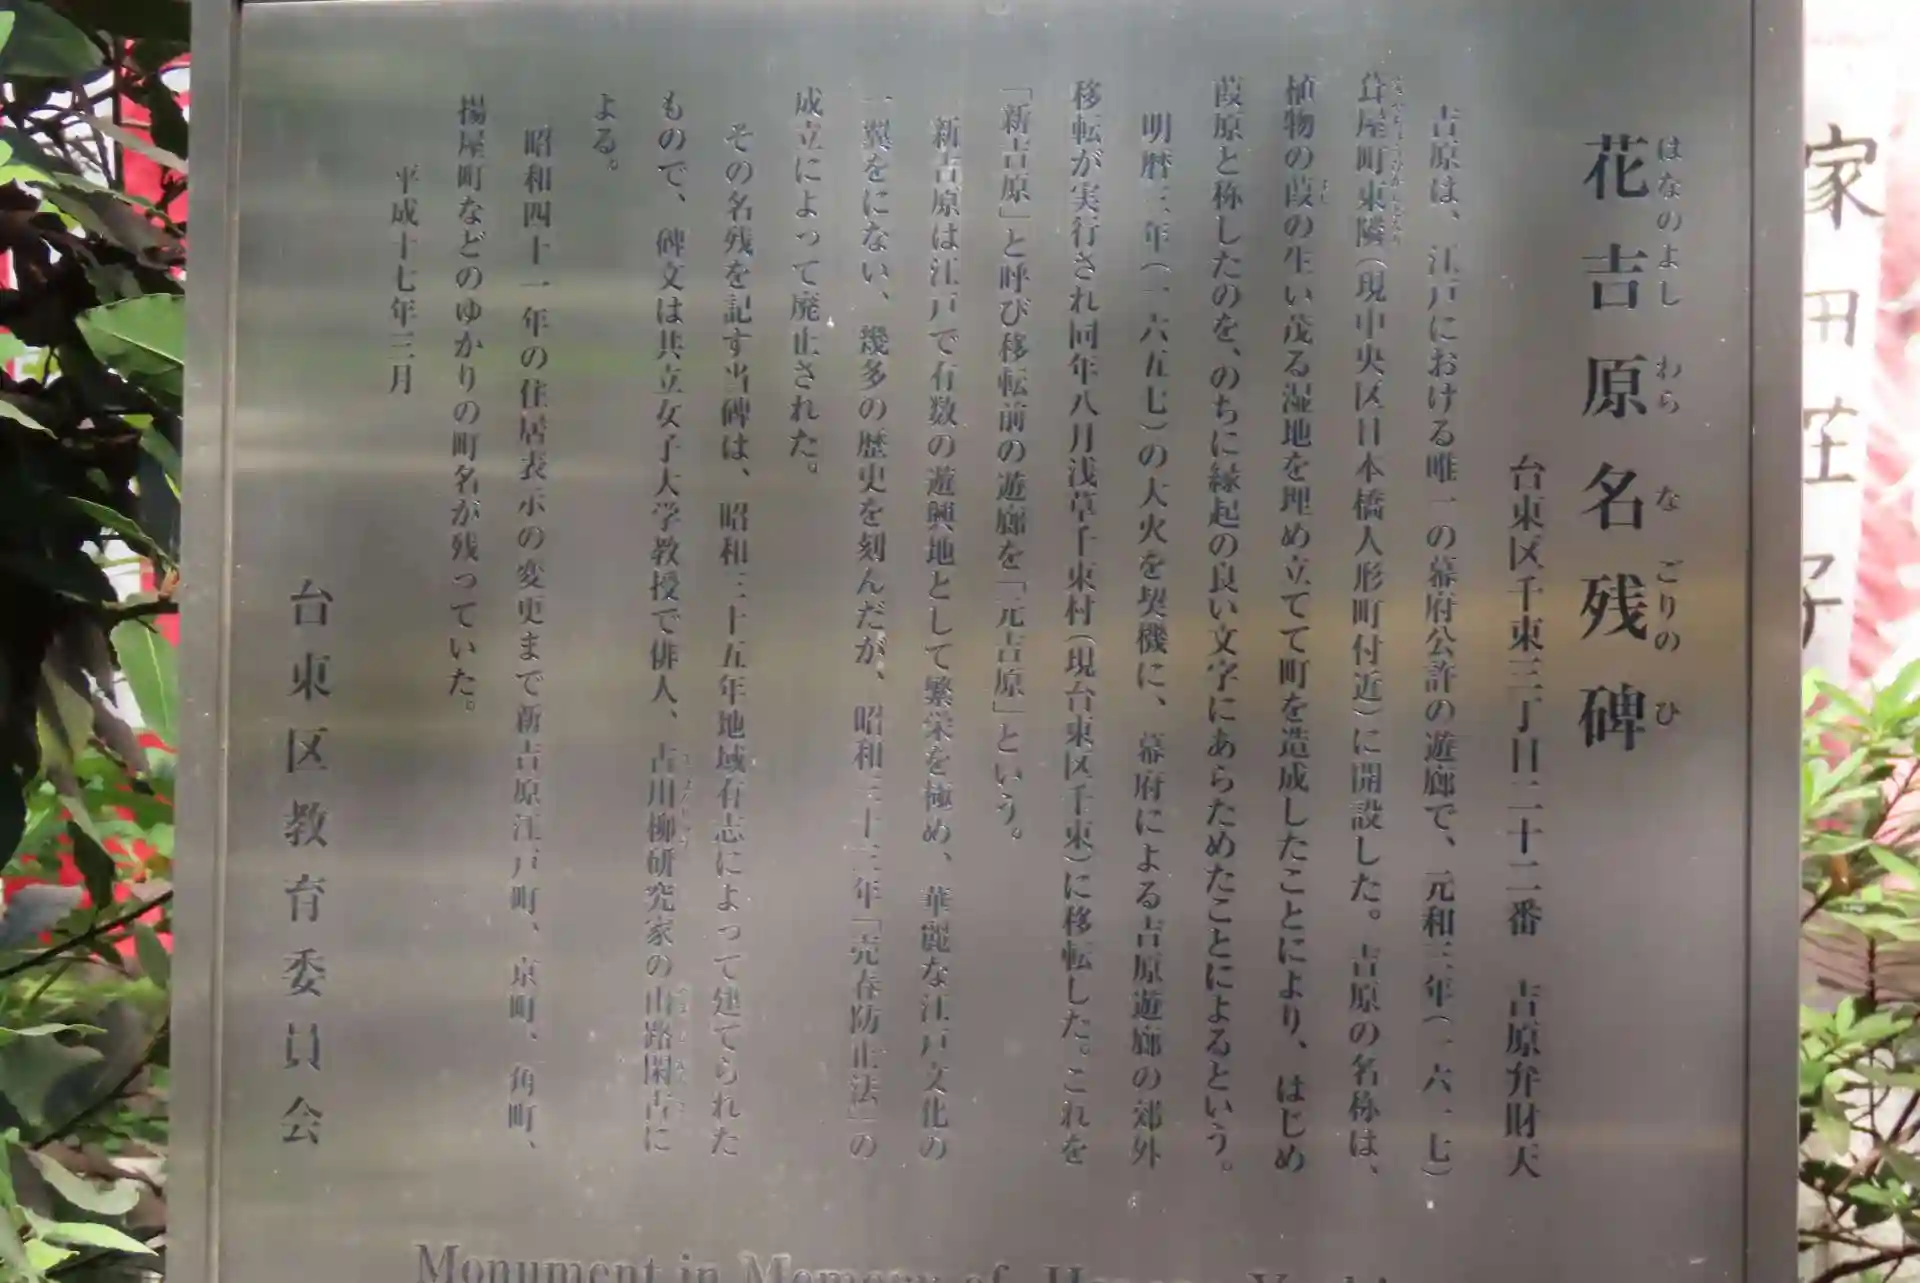 花吉原名残碑
はなのよしわらなごりのひ
台東区千束三丁目二十二番　吉原弁財天
吉原は、江戸における唯一の幕府公許の遊廓で、元和三年(一六一七)
葺屋町東隣(現中央区日本橋人形町付近)に開設した。吉原の名称は、
植物の葭の生い茂る湿地を埋め立てて町を造成したことにより、はじめ
葭原と称したのを、のちに縁起の良い文字にあらためたことによるという。
明暦三年(一六五七)の大火を契機に、幕府による吉原遊廓の郊外
移転が実行され同年八月浅草千束村(現台東区千束)に移転した。これを
「新吉原」と呼び移転前の遊廓を「元吉原」という。
新吉原は江戸で有数の遊興地として繁栄を極め、華麗な江戸文化の
一翼をにない、幾多の歴史を刻んだが、昭和三十三年「売春防止法」の
成立によって廃止された。
その名残を記す当碑は、昭和三十五年地域有志によって建てられた
もので、碑文は共立女子大学教授で俳人、古川柳研究家の山路閑古に
よる。
昭和四十一年の住居表示の変更まで新吉原江戸町、京町、角町、
揚屋町などのゆかりの町名が残っていた。
平成十七年三月
台東区教育委員会
Monument in Memory of
家田荘子